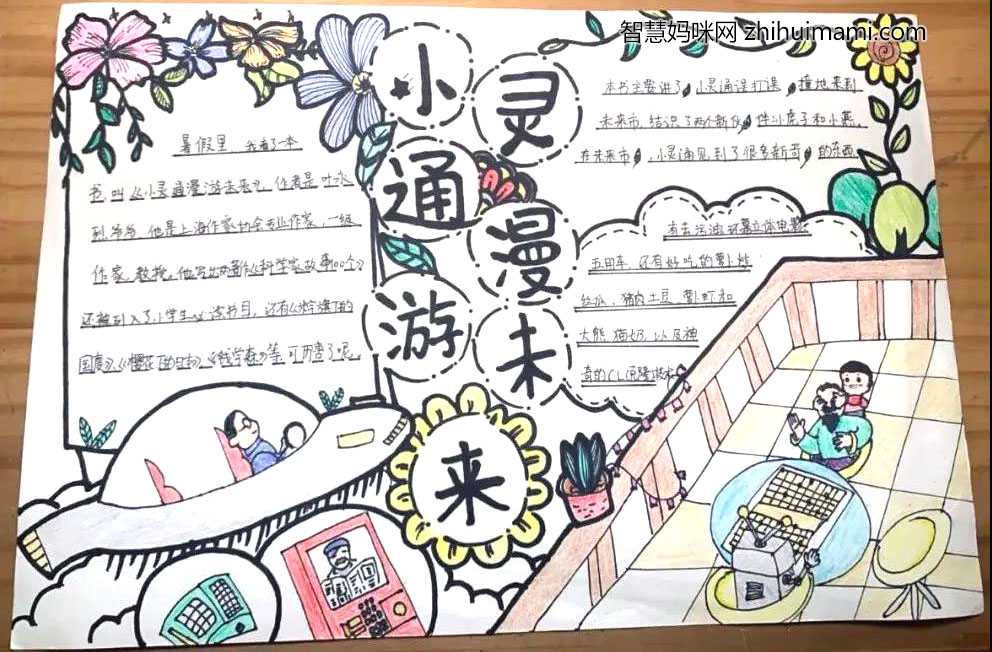 智慧妈咪网 zhihuimami.com
小灵通漫游未来
暑假里,我看了一本
书,叫《小灵通漫游未来》,作者是叶永
烈爷爷,他是上海作家协会专业作家,一级
作家,教授。他写出两部作《科学家故事100个》
还被列入了小学生必读书目,还有《
国度》《
本书主要讲了,小灵通误打误撞地来到
未来市,结识了两个新伙伴小虎子和小燕。
在未来市,小灵通见到了很多新奇的东西。
有去污油,环幕立体电影,
五用车,还有好吃的
丝瓜、猪肉土豆、
大熊猫奶,以及神
奇的CL